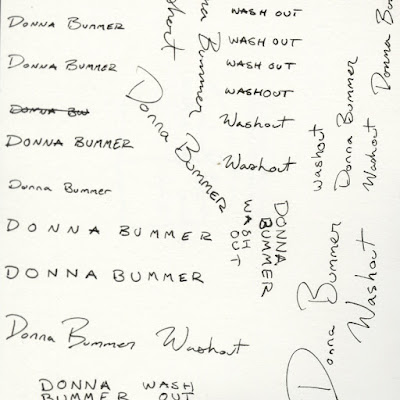 DONNA BUMMER
DONNA BUMMER
DONNA BU
DONNA BUMMER
Donna Bummer
DONNA BUMMER
DONNA BUMMER
Donna Bummer Washout
DONNA WASH
BUMMER OUT
DONNA BUMMER
Bummer
WASH OUT
WASH OUT
WASH OUT
WASHOUT
Washout
Washout
WASH
OUT
DONNA
BUMMER
washout
Donna Bummer
Washout
Donna
Donna Bummer
Washout